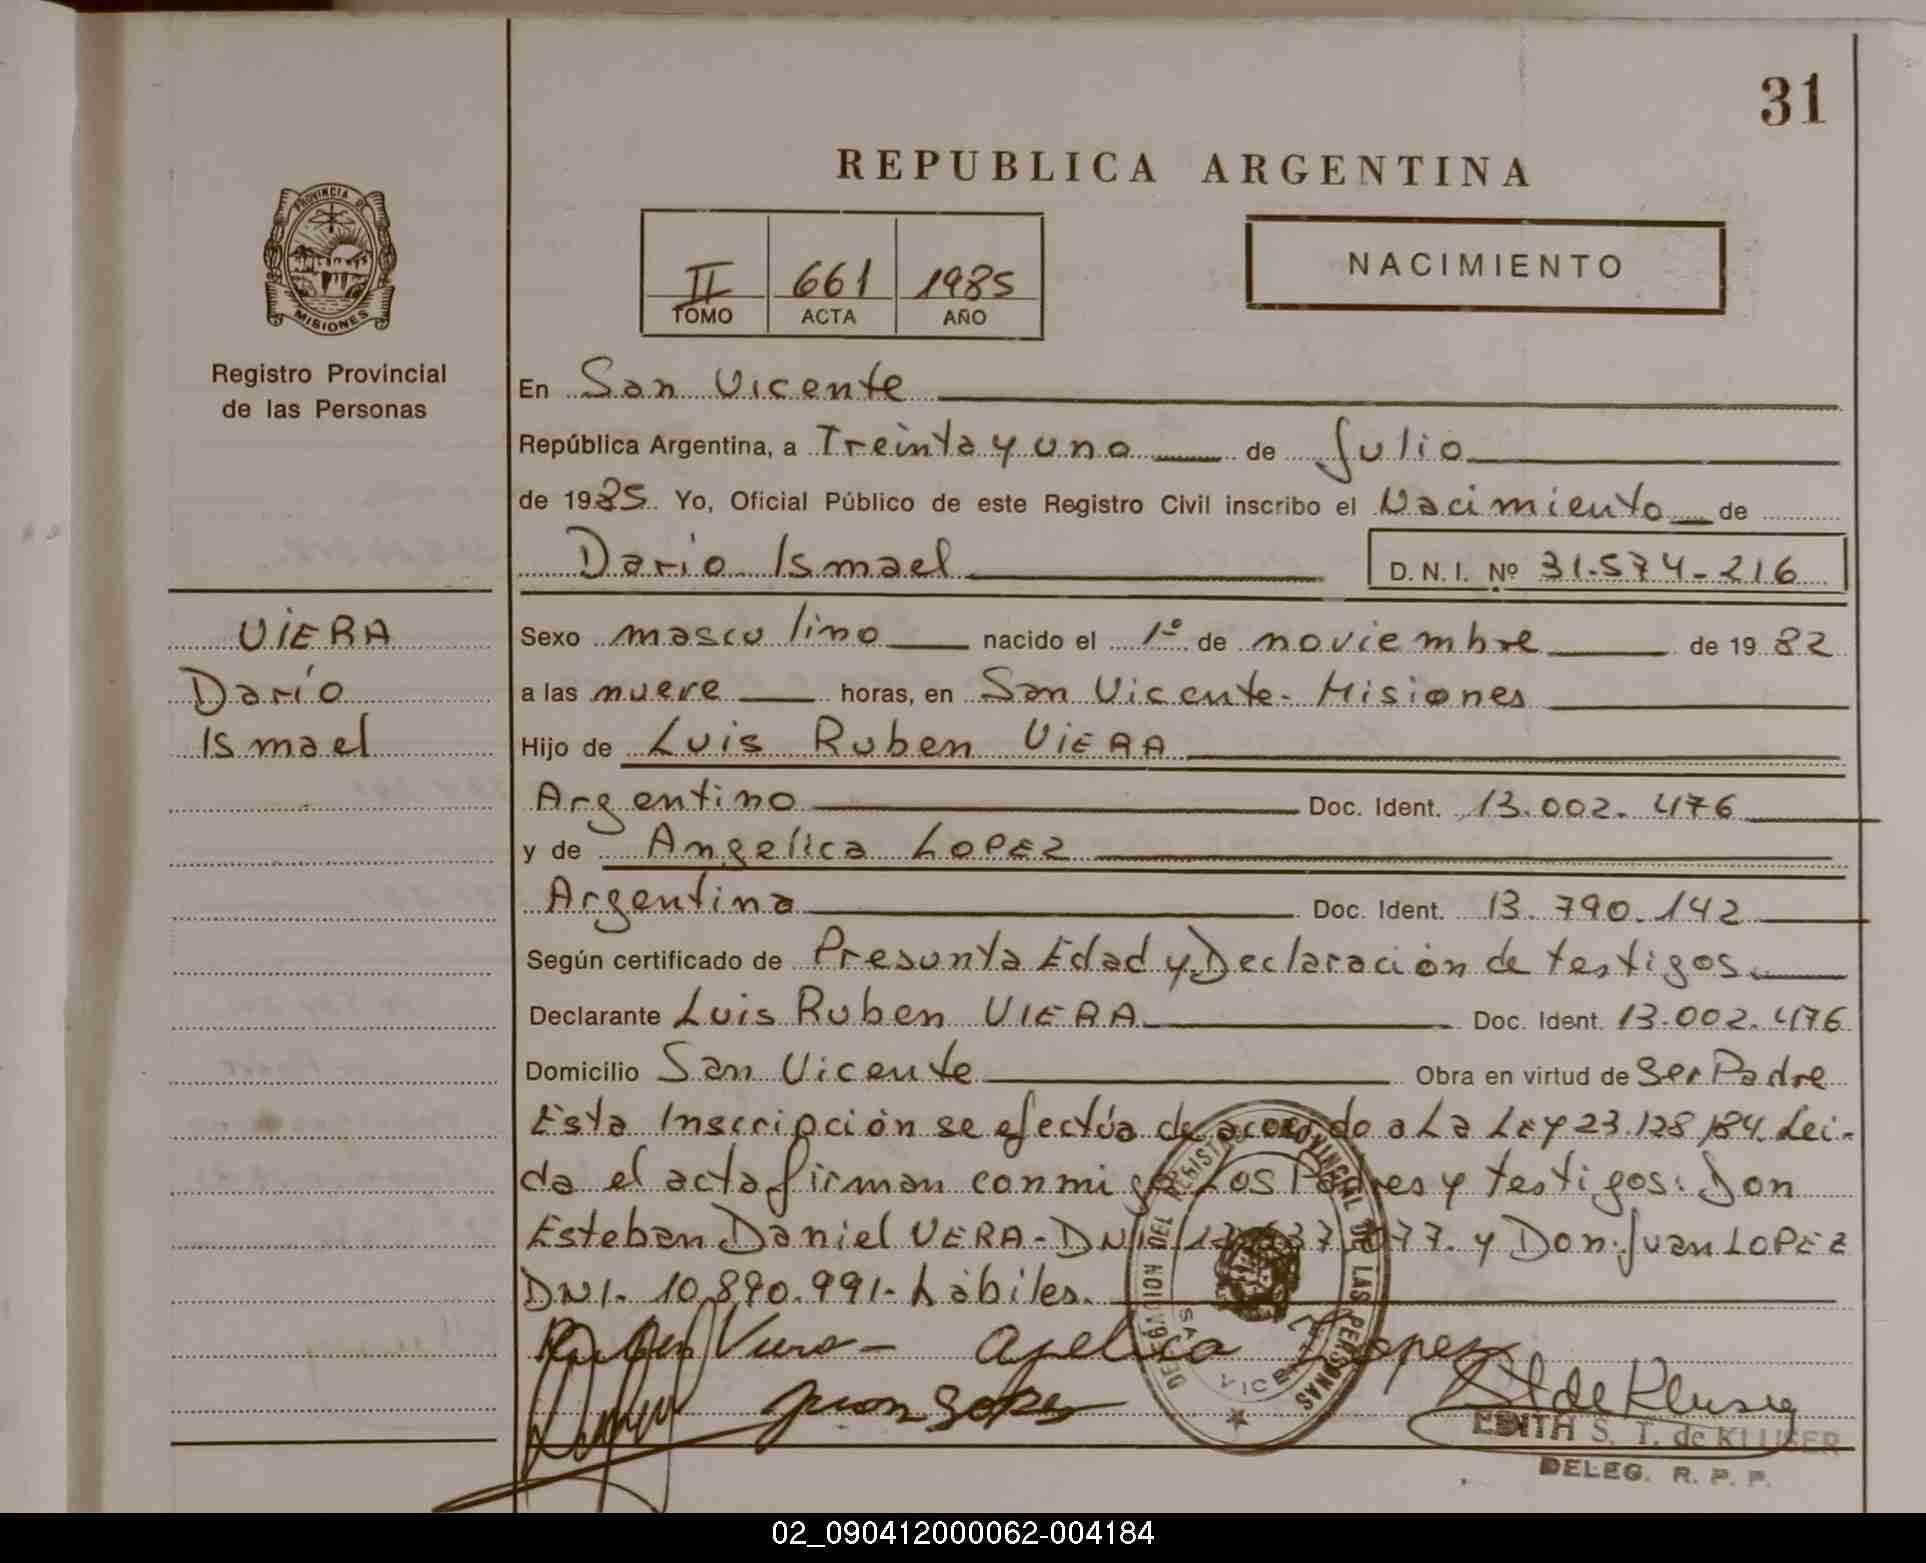 31
REPUBLICA ARGENTINA
PROVINCIA DE
MISIONES
Registro Provincial
de las Personas
II 661 1985
TOMO ACTA AÑO
NACIMIENTO
En San Vicente
República Argentina, a Treinta y uno de Julio
de 1985. Yo, Oficial Público de este Registro Civil inscribo el Nacimiento de
Dario Ismael D. N. I. Nº 31.574-216
VIERA
Darío
Ismael
Sexo masculino nacido el 1º de noviembre de 1982
a las nueve horas, en San Vicente- Misiones
Hijo de Luis Ruben VIERA
Argentino Doc. Ident. 13.002.476
y de Angelica LOPEZ
Argentina Doc. Ident. 13.790.142
Según certificado de Presunta Edad y Declaración de testigos.
Declarante Luis Ruben VIERA Doc. Ident. 13.002.476
Domicilio San Vicente Obra en virtud de Ser Padre
Esta Inscripción se efectúa de acuerdo a La LEY 23.128/84. Lei-
da el acta firman conmigo Los Padres y testigos: Don
Esteban Daniel VERA- DNI y Don Juan LOPEZ
DNI- 10.890.991- hábiles.
Ruben Viera- Angelica Lopez
Juan Lopez
S T de Kluser
EDITH S. T. de KLUSER
DELEG. R. P. P.
DELEGACION DEL REGISTRO PROVINCIAL DE LAS PERSONAS
SAN VICENTE
02_090412000062-004184